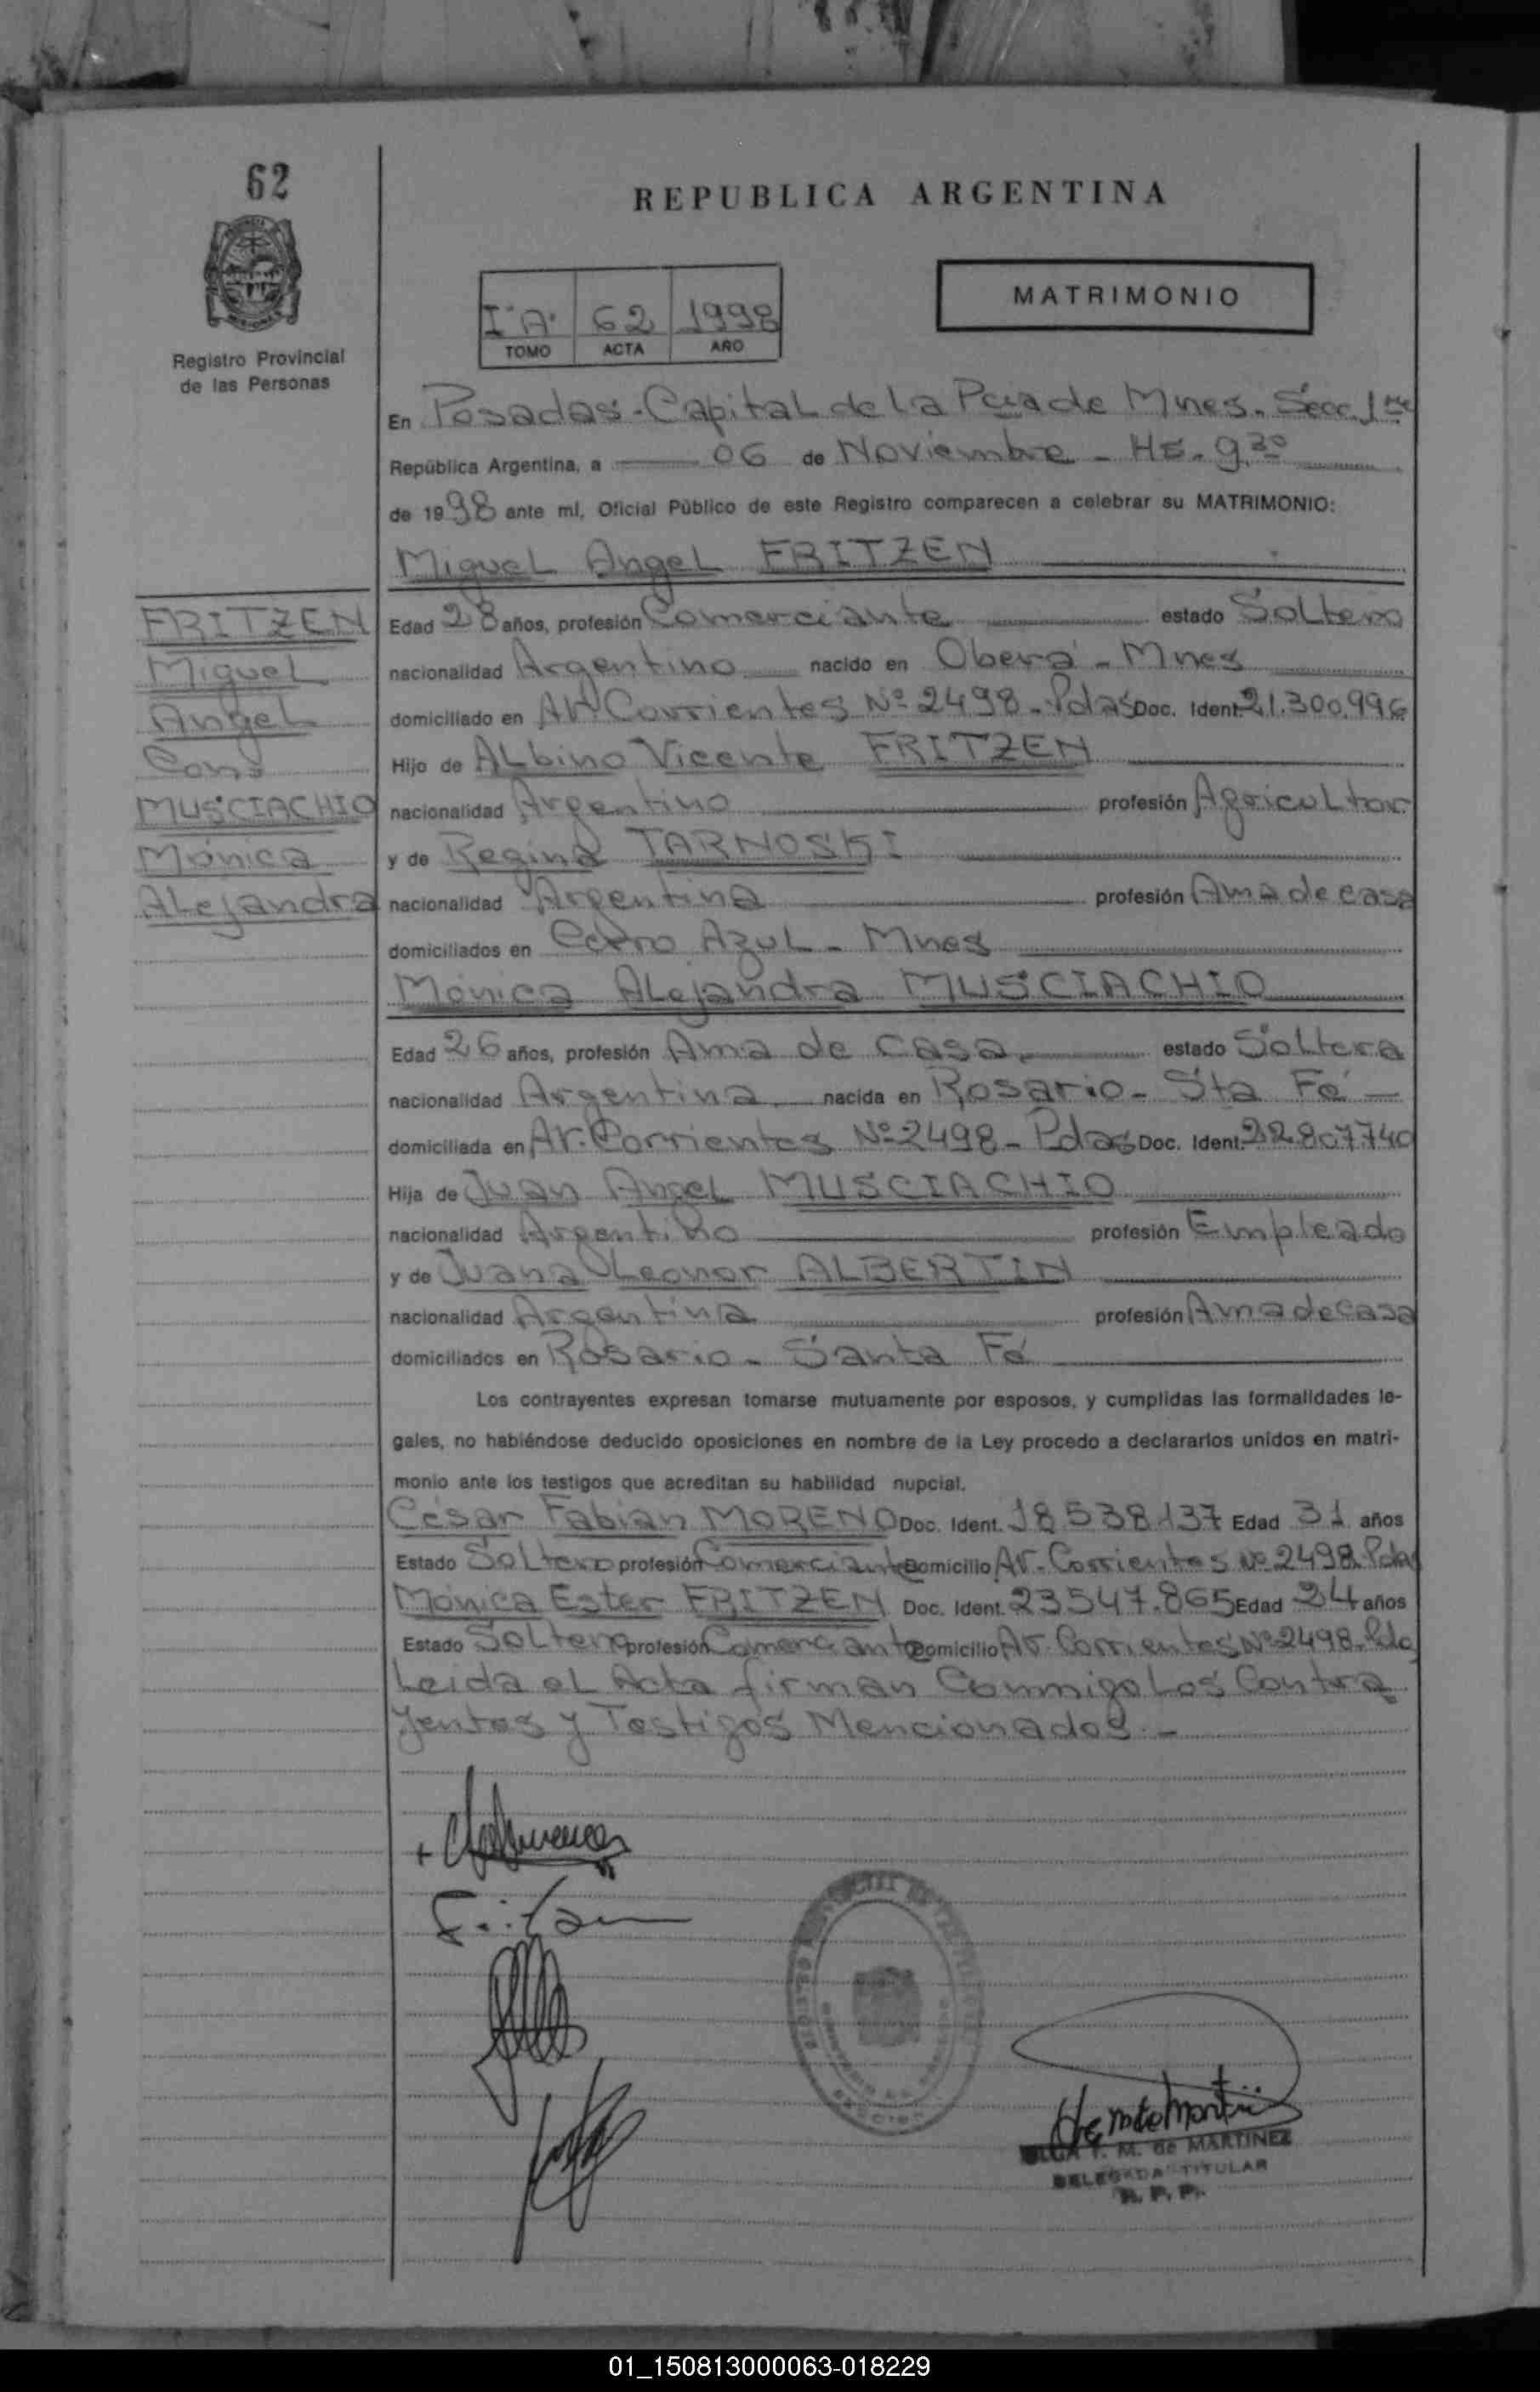 62
REPUBLICA ARGENTINA
MATRIMONIO
Iº A. 62 1998
TOMO ACTA AÑO
Registro Provincial
de las Personas
En Posadas - Capital de la Pcia de Mnes. Secc. 1ra
República Argentina, a 06 de Noviembre - Hs. 9.30
de 1998 ante mí, Oficial Público de este Registro comparecen a celebrar su MATRIMONIO:
Miguel Angel FRITZEN
FRITZEN
Miguel
Angel
Con
MUSCIACHIO
Mónica
Alejandra
Edad 28 años, profesión Comerciante estado Soltero
nacionalidad Argentino nacido en Oberá - Mnes
domiciliado en Av. Corrientes Nº 2498 - Pdas Doc. Ident. 21.300.996
Hijo de Albino Vicente FRITZEN
nacionalidad Argentino profesión Agricultor
y de Regina TARNOSKI
nacionalidad Argentina profesión Ama de casa
domiciliados en Cerro Azul - Mnes
Mónica Alejandra MUSCIACHIO
Edad 26 años, profesión Ama de casa estado Soltera
nacionalidad Argentina nacida en Rosario - Sta Fé
domiciliada en Av. Corrientes Nº 2498 - Pdas Doc. Ident. 22.807.740
Hija de Juan Angel MUSCIACHIO
nacionalidad Argentino profesión Empleado
y de Juana Leonor ALBERTIN
nacionalidad Argentina profesión Ama de casa
domiciliados en Rosario - Santa Fé
Los contrayentes expresan tomarse mutuamente por esposos, y cumplidas las formalidades le-
gales, no habiéndose deducido oposiciones en nombre de la Ley procedo a declararlos unidos en matri-
monio ante los testigos que acreditan su habilidad nupcial.
César Fabian MORENO Doc. Ident. 18.538.137 Edad 31 años
Estado Soltero profesión Comerciante Domicilio Av. Corrientes Nº 2498 Pdas
Mónica Ester FRITZEN Doc. Ident. 23.547.865 Edad 24 años
Estado Soltera profesión Comerciante Domicilio Av. Corrientes Nº 2498 Pdas
Leida el Acta firman Conmigo Los Contra
yentes y Testigos Mencionados. -
Fritzen
M. de MARTINEZ
DELEGADA TITULAR
R. P. P.
01_150813000063-018229